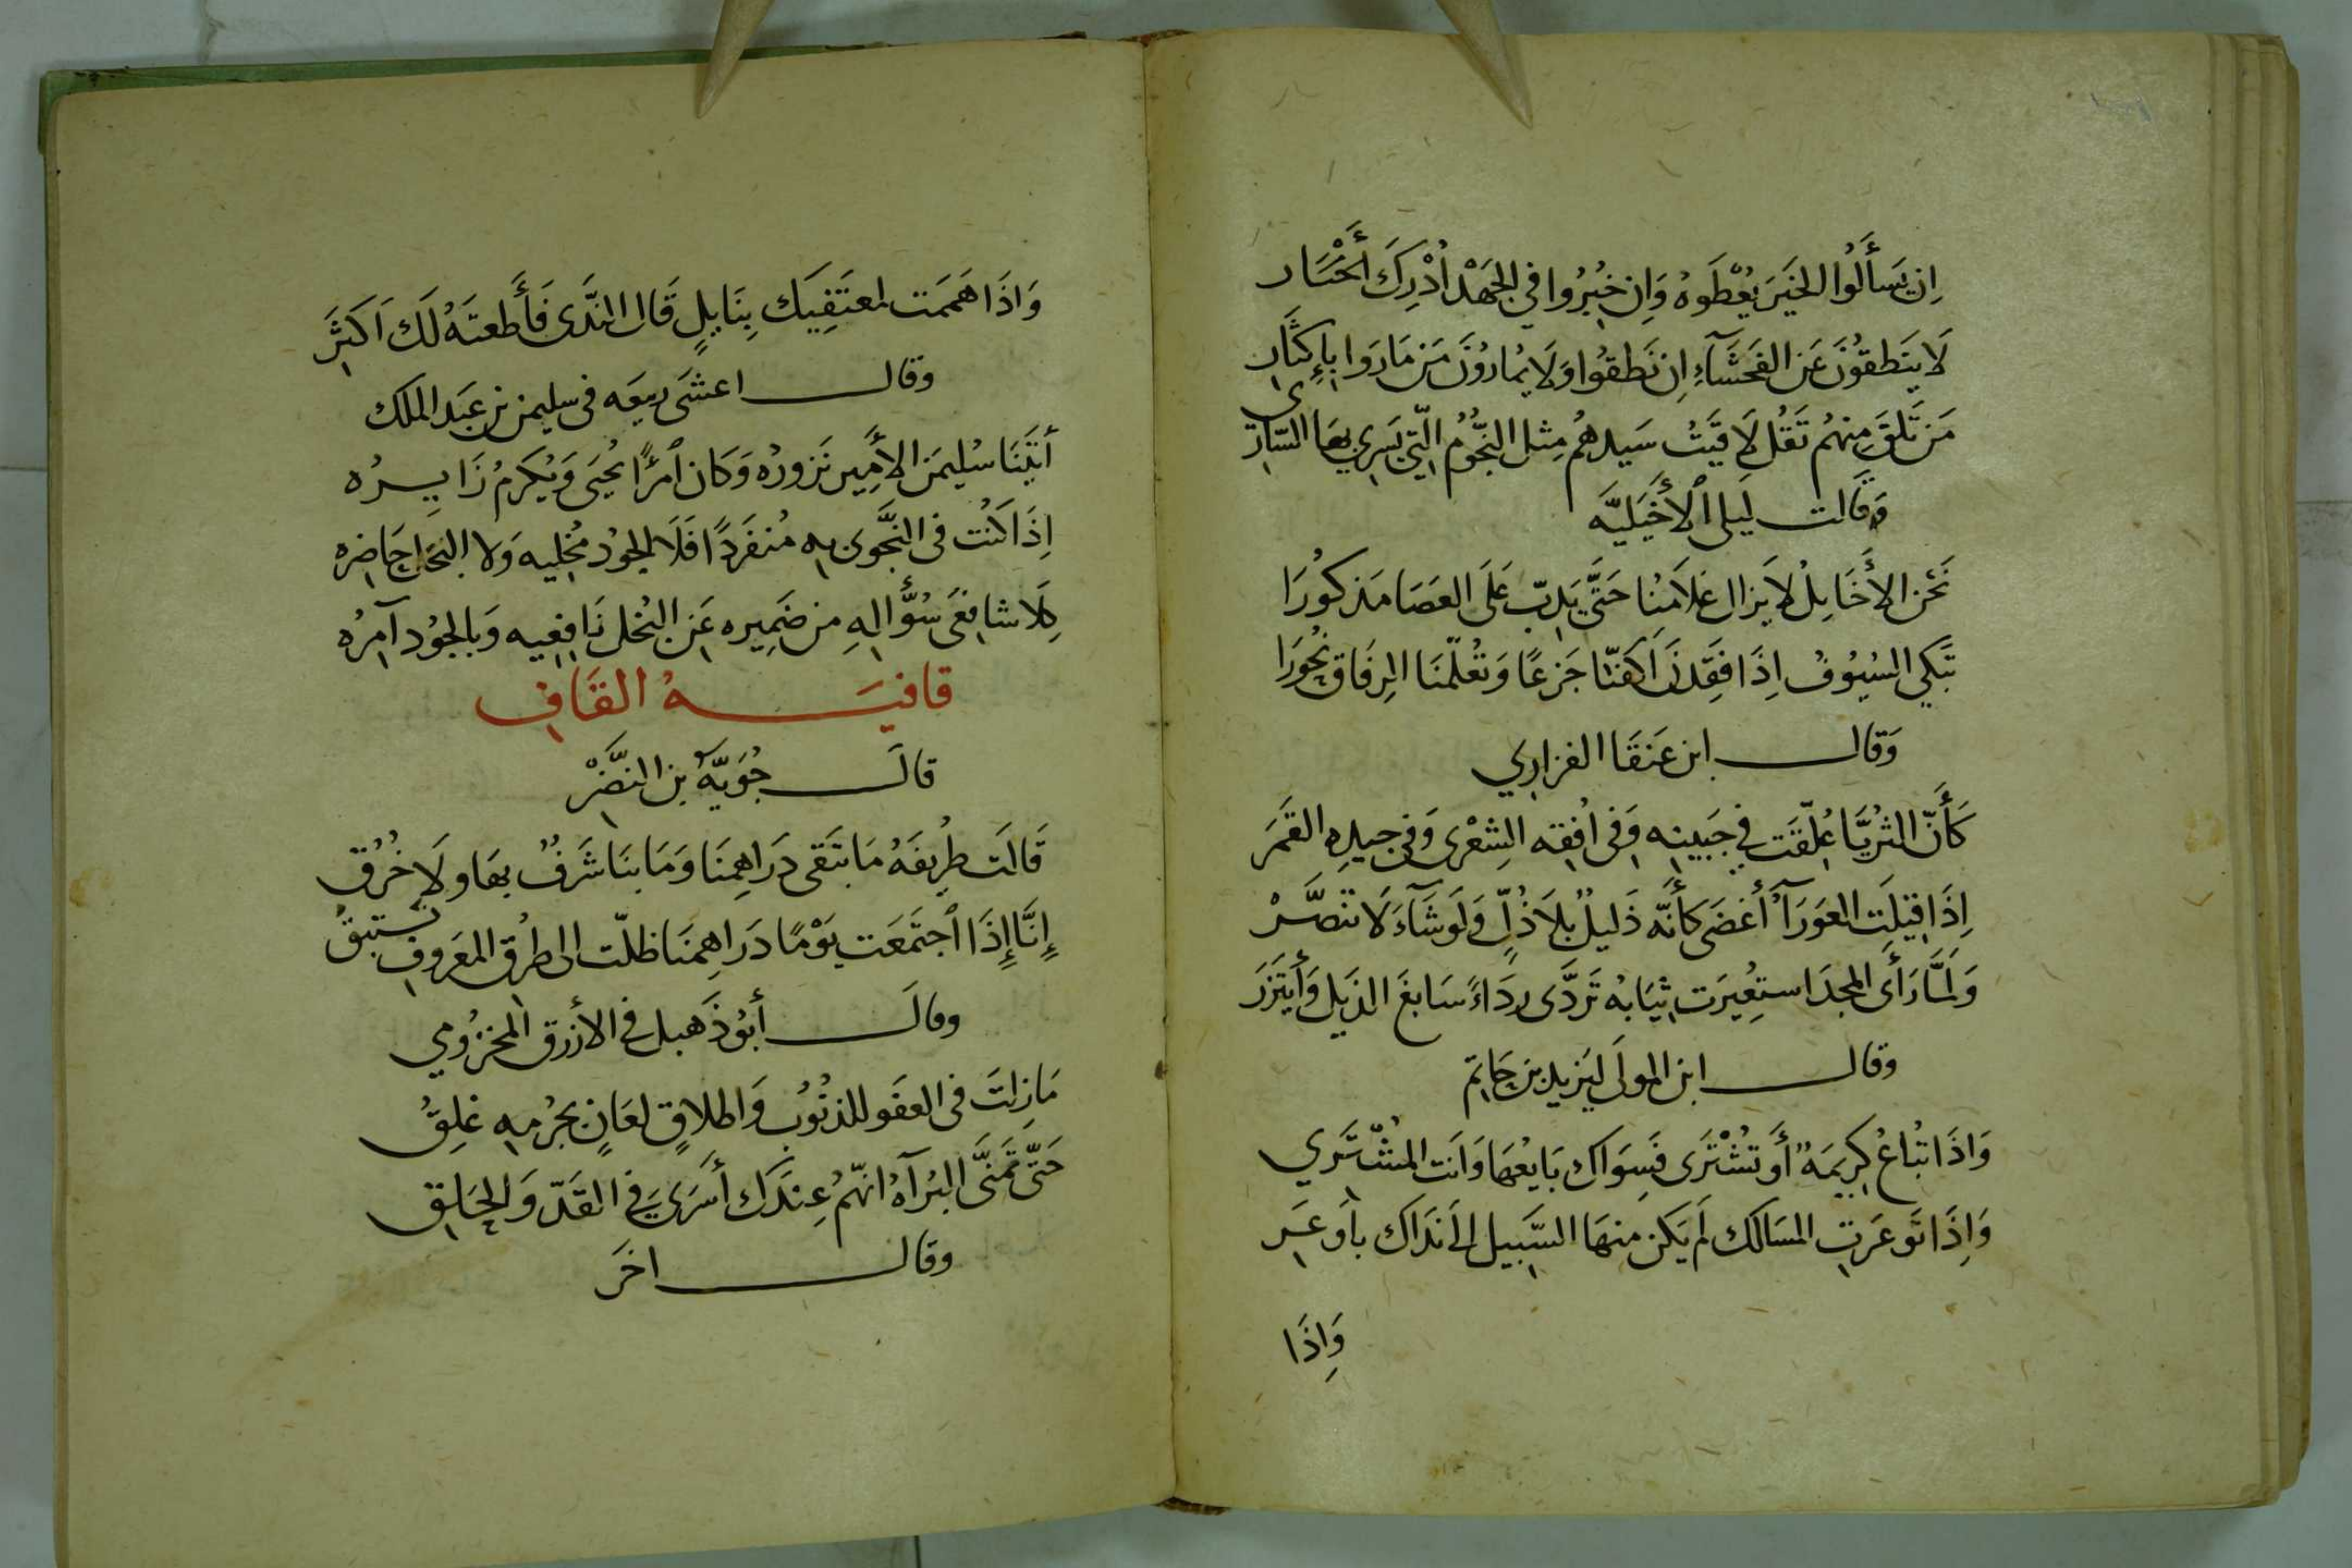 اِن يَسأَلُوا الخَيرَ يُعْطَوهُ وَاِن خُبِرُوا فِي الجَهْدِ اُدْرِكَ
لَا يَنَطِقُونَ عَنِ الفَحَشَآءِ اِن نَطَقُوا وَلَا يُمارُونَ مَن مَارَوا بِاِكثَار
مَن تَلقَ مِنهُم تَقُل لَاقَيَتُ سَيِّدهُم مِثل النجُّوُم الّتي يَسرِي بِهَا السّارِي
وَقَالت لَيلى الأَخيَليَّه
نَحَنُ الأَخَايِلُ لَا يَزال غلَامُنا حَتَّى يَدِبّ عَلَى العَصَا مَذكوُرَا
تَبَكي السُيُوُف اِذَا فَقَدنَ اَكفّنَا جَزعًا وَتعُلّمنَا الرِفَاق بُحوُرَا
وَقال ابن عَنَقَا الفزاري
كَأَنّ الثرُيَّا عُلّقَت فِي جَبينِه وَفى اُفِقه الشِعْرى وَفي جيدِه القَمَر
اِذَا قيلَتِ العَوَرَآءُ أغضَى كأَنّه ذَليلُ بلَا ذُلٍّ وَلَوشَآءَ لَانتصَّرْ
وَلمَّا رَأَى المجدَ استعُيِرَت ثيَابهُ تَرَدَّى رِدَاءً سَابغَ الذَيل وَأَيتَزَرَ
وقال ابن المولَى ليَزيد بن حَاتِم
وَاذَا تُباعُ كَريمَةٌ أَو تُشْتَرى فَسِوَاك بَايعُهَا وَاَنت المُشْتَري
وَاِذَا تَوعَرَتِ المسَالك لَم يَكن مِنهَا السَّبيل الىَ نَدَاك بأَوعَر
وَاِذَا
وَاذَا هَمَمَت لمعتَفِيَك بِنَايِلٍ قَال النّدَى فَأَطعتَهُ لَك اَكثَر
وقال اعشَى ربيعَه في سليمن بن عَبَد الملك
أتَيَنَا سُليمَن الأَمِير نَزورُه وَكَان اَمرًأ يُحيَى وَيُكَرمُ زَايِرُه
اِذَا كُنتُ في النَجَّوى بِه مُنفَرِدًا فَلَا الجوُد مُخليِه وَلا البُخَل حَاضِره
كِلَا شافِعَى سُؤّالِهِ مِن ضَمِيرِه عَنِ البُخل نَاهِيه وَبالجُوُد آمِرُه
قافيَةُ القَافِ
قالَ جُوَيّةُ بن النضَّرْ
قَالَت طُرِيفَةُ مَا تبَقى دَرَاهِمنَا وَمَا بنَا شَرَفٌ بهَا وَلَا خُرُق
إنَّا إذَا اَجتَمَعَت يَوْمًا دَرَاهِمنَا ظلّت الى طرُق المعَروفِ تَستَبِقُ
وقالَ أبَوُ دَهبل في الأزرق المخزوُمي
مَا زِلتَ في العفَو للذنُوُبِ وَاطلاقٍ لعَانٍ بجُرمِه غلِقِ
حَتّى تَمنَّى البُرَآهُ انّهُم عِندَك أسَرَى فى القَدّ وَالحَلَق
وقال اخَر